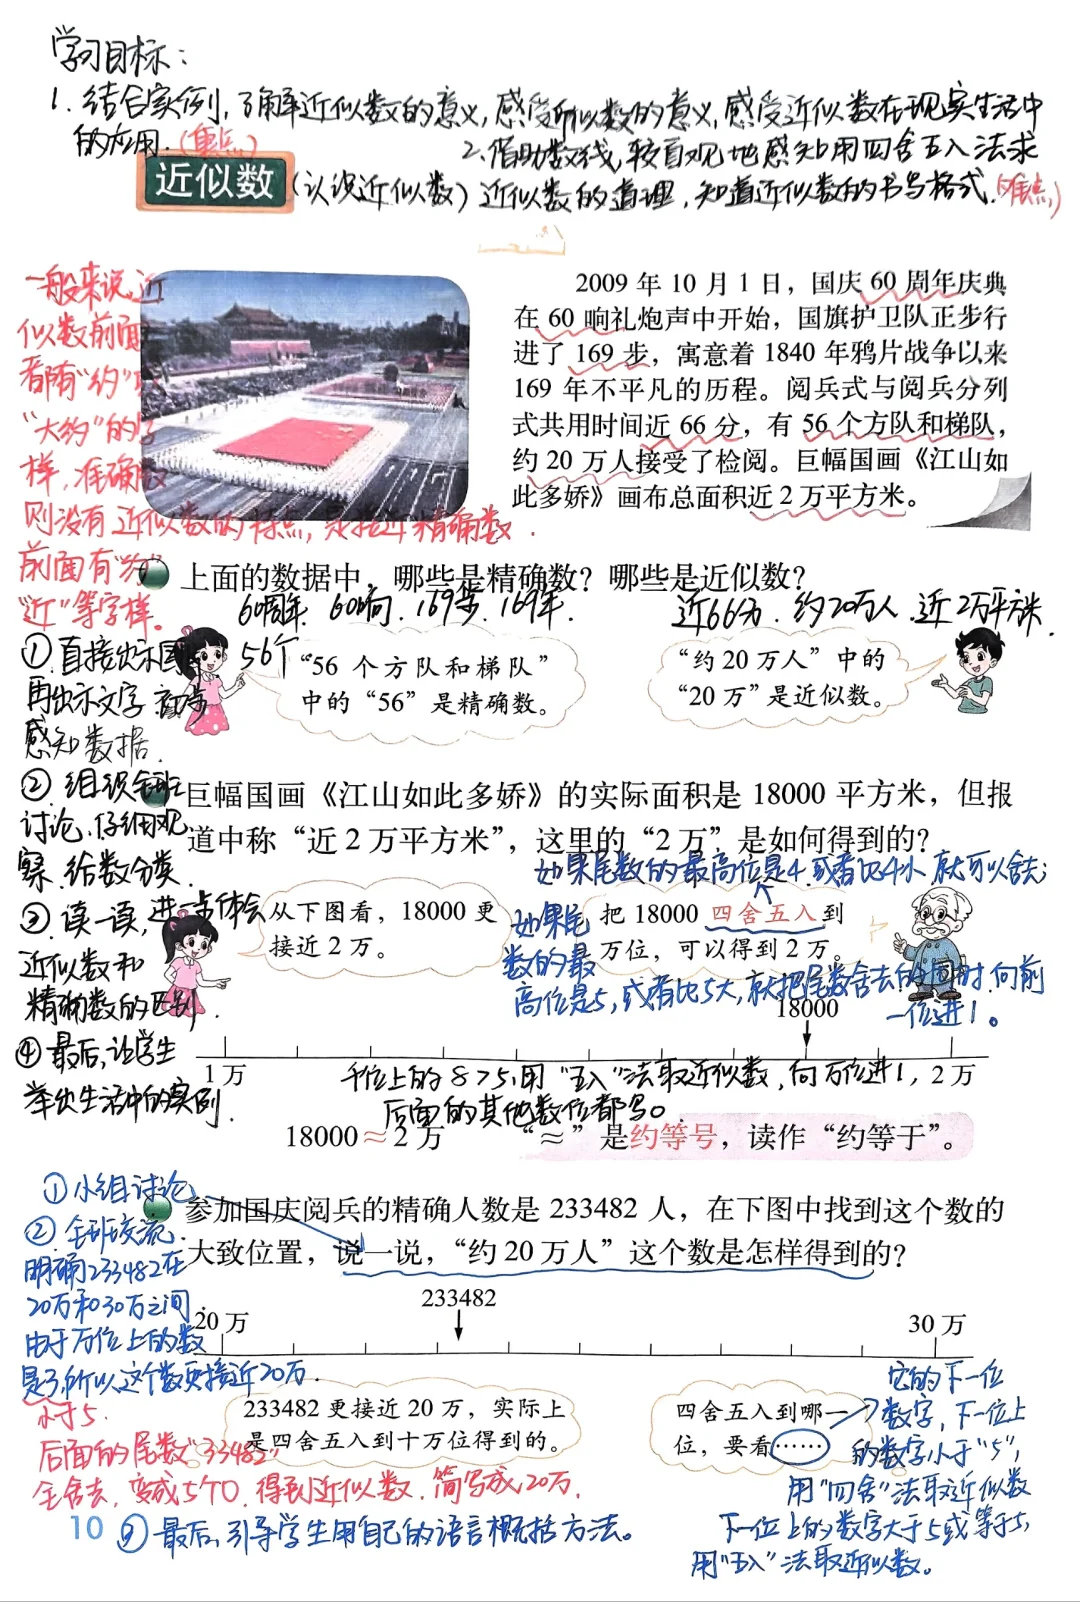 学习目标：
1. 结合实例，了解近似数的意义，感受近似数的意义，感受近似数在现实生活中
的应用.（重点）
2. 借助数线，较直观地感知用四舍五入法求
近似数（认识近似数）近似数的道理，知道近似数的书写格式.（难点）
一般来说，近
似数前面
都有“约”或
“大约”的字
样，准确数
则没有近似数的特点，是接近精确数.
前面有“约”
“近”等字样。
2009 年 10 月 1 日，国庆 60 周年庆典
在 60 响礼炮声中开始，国旗护卫队正步行
进了 169 步，寓意着 1840 年鸦片战争以来
169 年不平凡的历程。阅兵式与阅兵分列
式共用时间近 66 分，有 56 个方队和梯队，
约 20 万人接受了检阅。巨幅国画《江山如
此多娇》画布总面积近 2 万平方米。
上面的数据中，哪些是精确数？哪些是近似数？
60周年. 60响. 169步. 169年.
56个
近66分. 约20万人. 近2万平方米.
“56 个方队和梯队”
中的“56”是精确数。
“约 20 万人”中的
“20 万”是近似数。
①直接出示图
再出示文字
感知数据.
②组织全班
讨论.仔细观
察.给数分类.
③读一读，进一步体会
近似数和
精确数的区别.
④最后，让学生
举出生活中的实例.
巨幅国画《江山如此多娇》的实际面积是 18000 平方米，但报
道中称“近 2 万平方米”，这里的“2 万”是如何得到的？
如果尾数的最高位是4或者比4小，就可以舍去；
如果尾
数的最
高位是5，或者比5大，就把尾数舍去的同时向前
一位进1。
从下图看，18000 更
接近 2 万。
把 18000 四舍五入到
万位，可以得到 2 万。
18000
1 万
2 万
千位上的8>5，用“五入”法取近似数，向万位进1，
后面的其他数位都写0
18000≈2 万
“≈”是约等号，读作“约等于”。
①小组讨论
②全班交流.
明确233482在
20万和30万之间.
由于万位上的数
是3，所以这个数更接近20万.
小于5.
后面的尾数“33482”
全舍去，变成5个0.得到近似数.简写成20万.
参加国庆阅兵的精确人数是 233482 人，在下图中找到这个数的
大致位置，说一说，“约 20 万人”这个数是怎样得到的？
233482
20 万
30 万
233482 更接近 20 万，实际上
是四舍五入到十万位得到的。
四舍五入到哪一
位，要看……
它的下一位
数字，下一位上
的数字小于“5”，
用“四舍”法取近似数
下一位上的数字大于5或等于5，
用“五入”法取近似数。
10
③最后，引导学生用自己的语言概括方法。